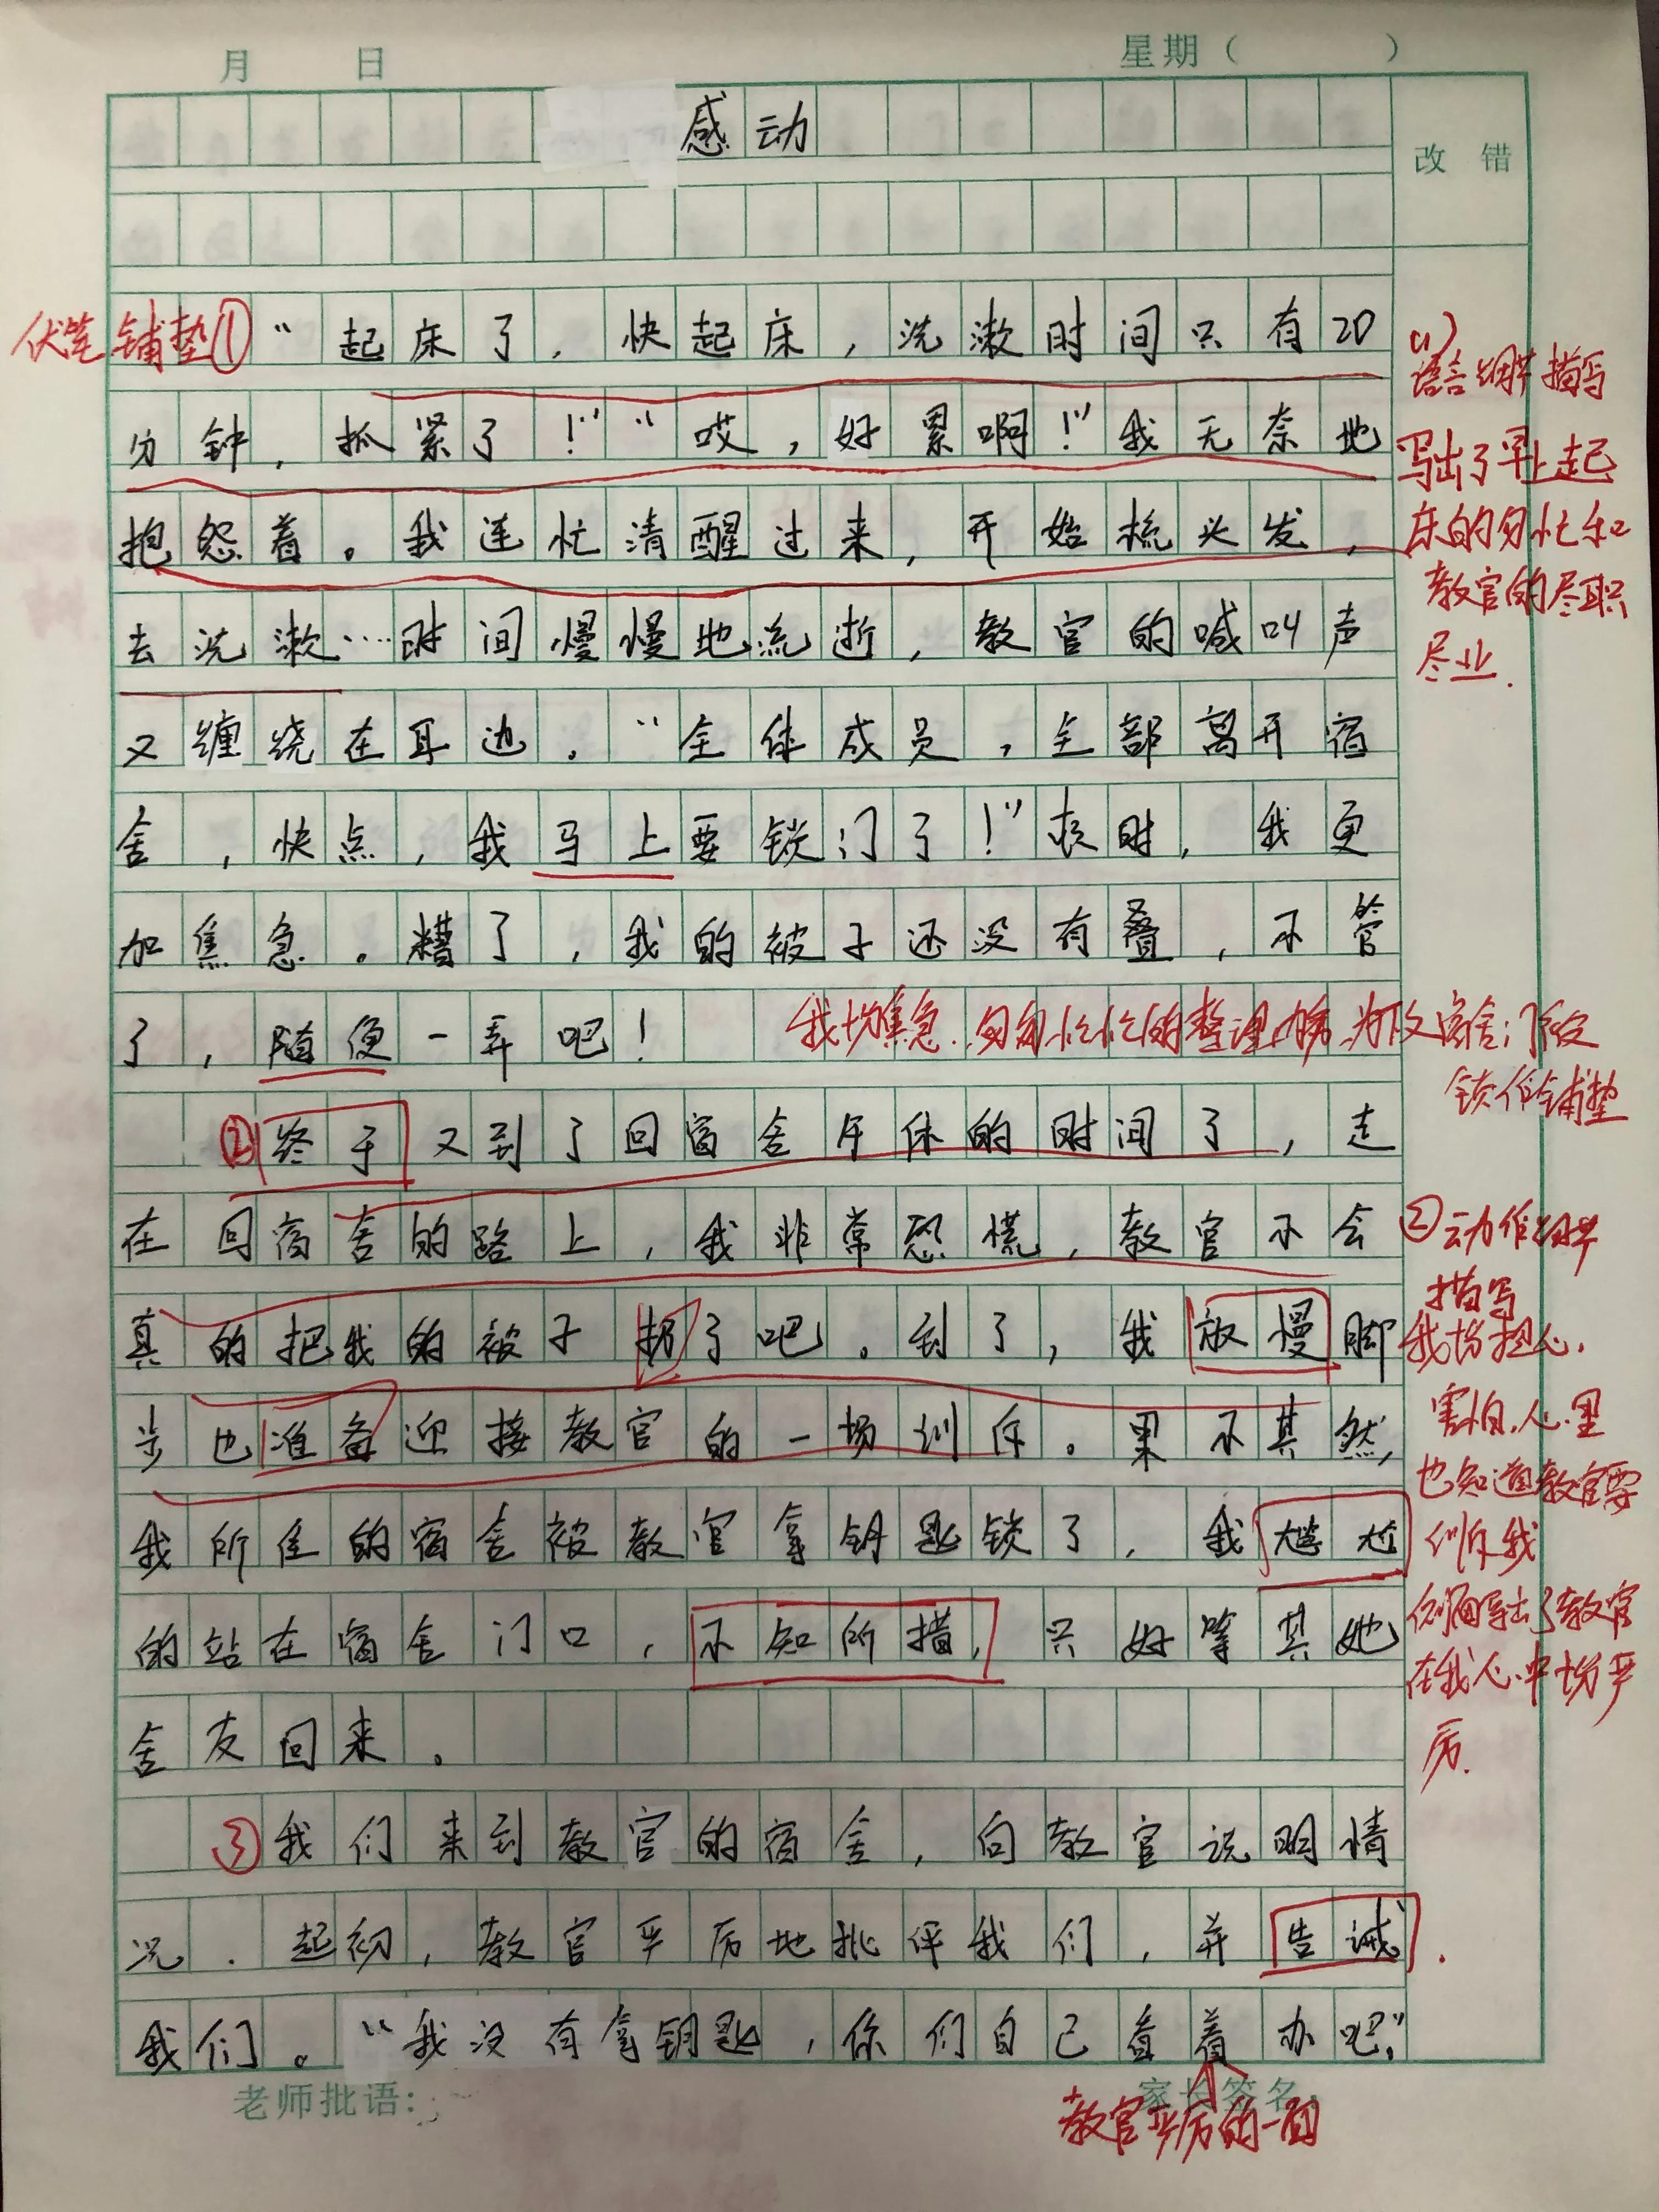 月 日 星期（ ）
感动
改 错
伏笔铺垫① “起床了，快起床，洗漱时间只有20
分钟，抓紧了！”“哎，好累啊！”我无奈地
抱怨着。我连忙清醒过来，开始梳头发，
去洗漱…时间慢慢地流逝，教官的喊叫声
又缠绕在耳边。“全体成员，全部离开宿
舍，快点，我马上要锁门了！”顿时，我更
加焦急。糟了，我的被子还没有叠，不管
了，随便一弄吧！
②终于又到了回宿舍午休的时间了，走
在回宿舍的路上，我非常恐慌，教官不会
真的把我的被子扔了吧。到了，我放慢脚
步也准备迎接教官的一场训斥。果不其然，
我所住的宿舍被教官拿钥匙锁了，我尴尬
的站在宿舍门口，不知所措，只好等其她
舍友回来。
③我们来到教官的宿舍，向教官说明情
况．起初，教官严厉地批评我们，并告诫
我们。“我没有拿钥匙，你们自己看着办吧，”
(1)
语言细节描写
写出了早上起
床的匆忙和
教官的尽职
尽业．
我的焦急．匆匆忙忙的整理内务，为后文宿舍门被
锁作铺垫
②动作细节
描写
我的担心．
害怕．心里
也知道教官要
训斥我
侧面写出了教官
在我心中的严
厉．
老师批语： 家长签名：
教官严厉的一面